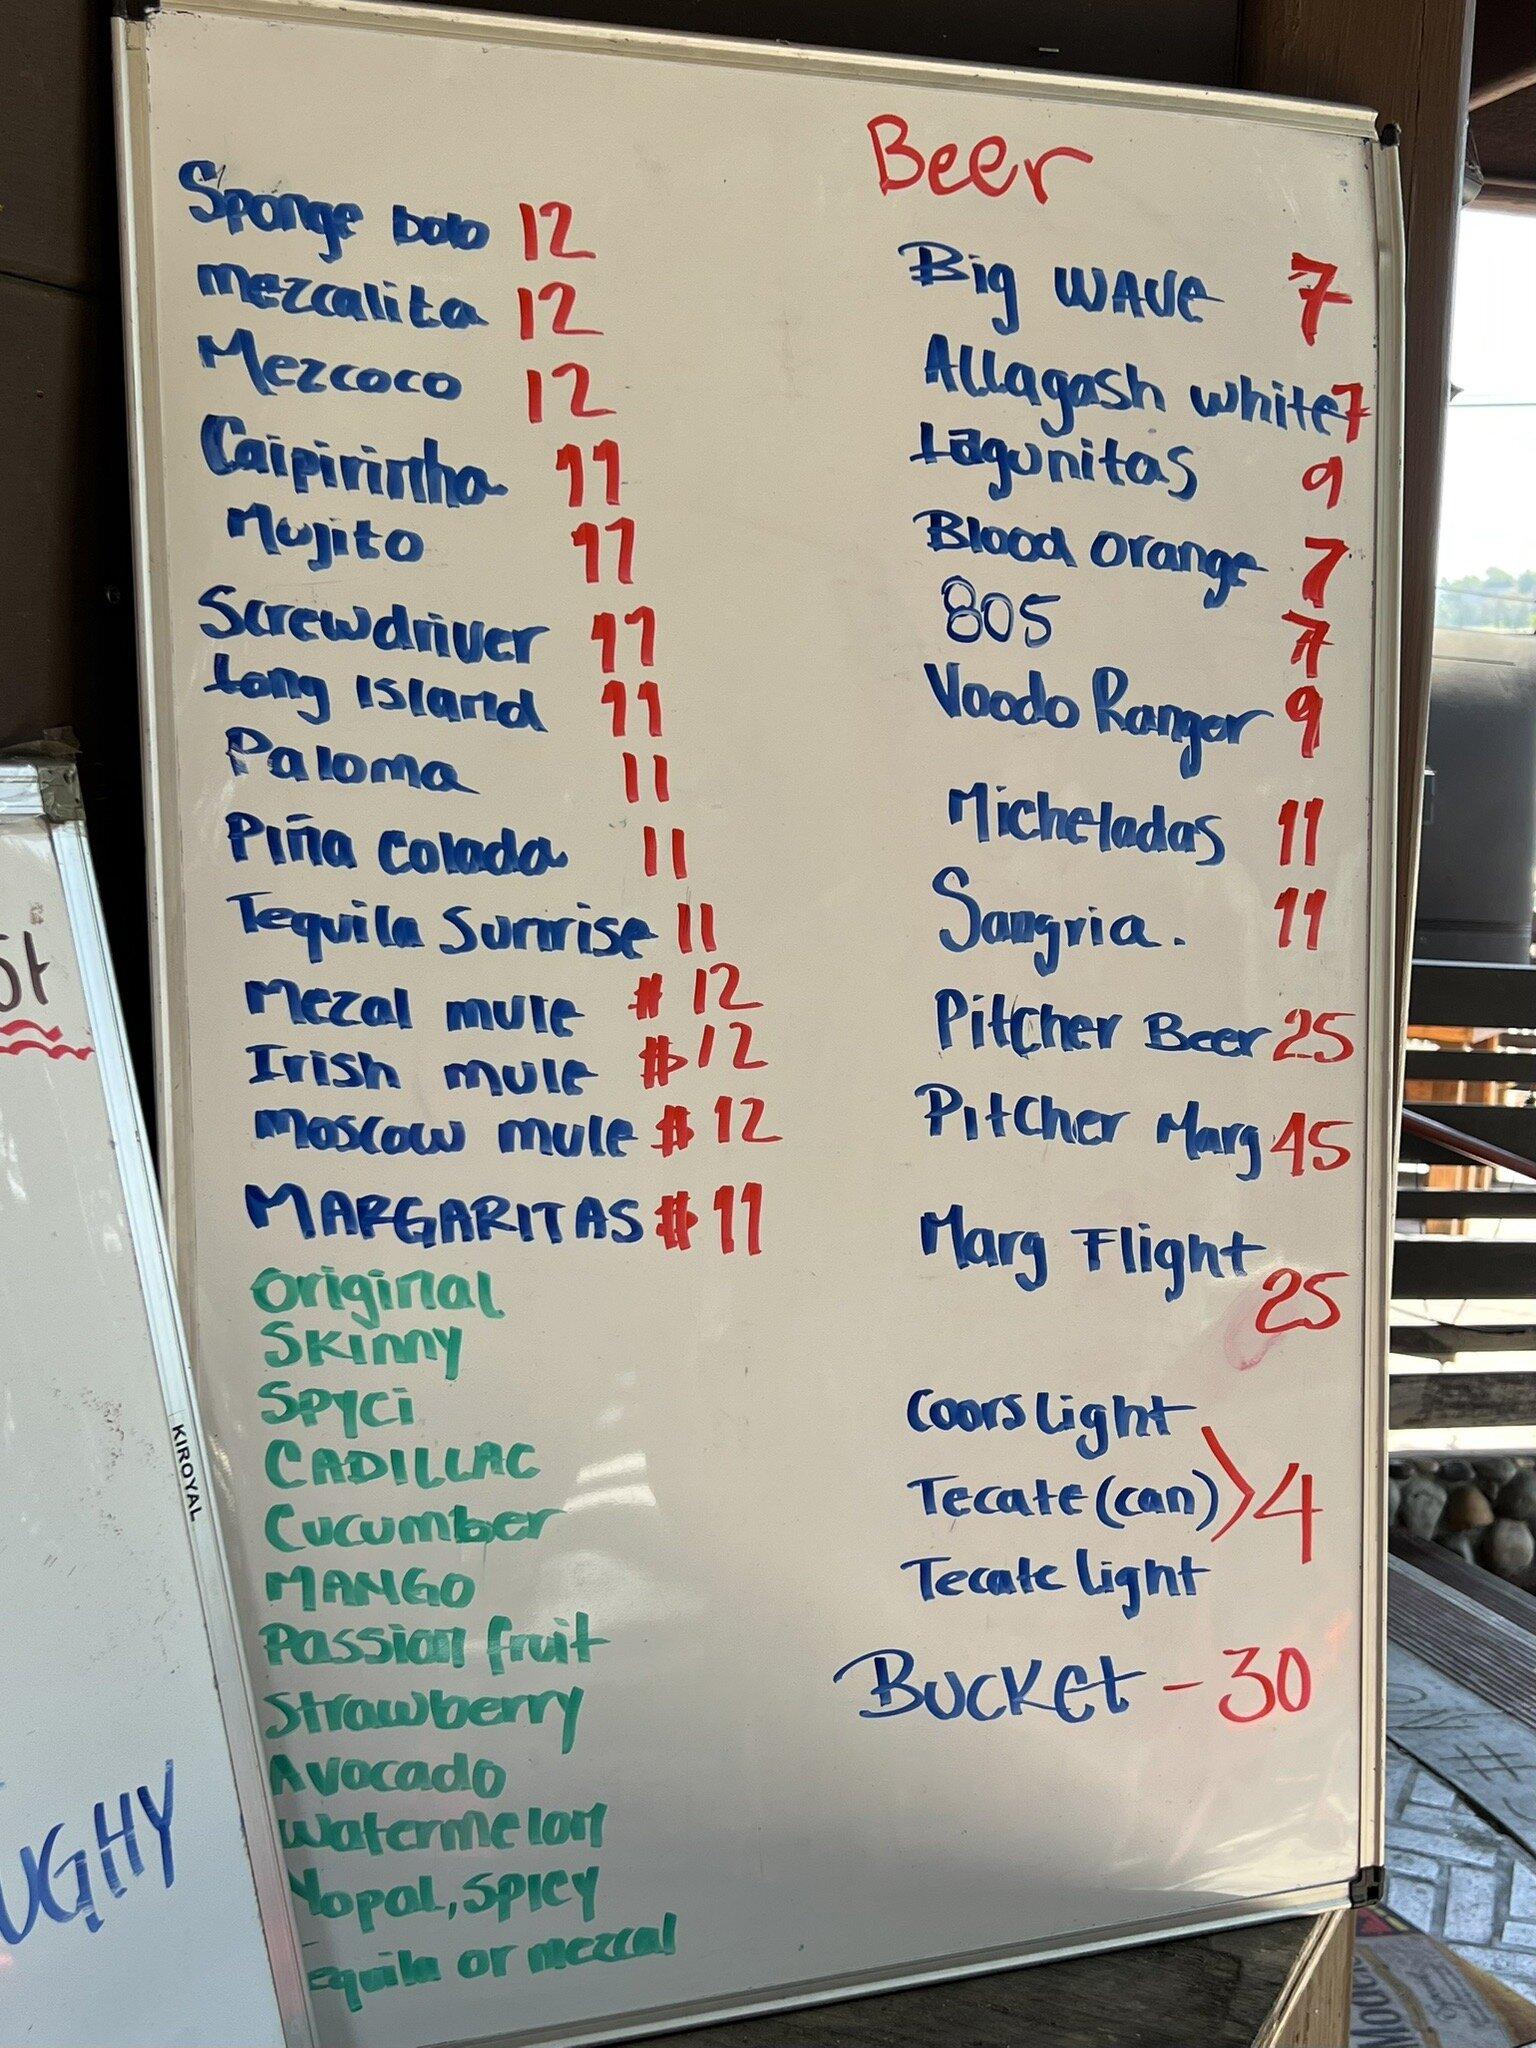 Sponge bolo 12
mezcalita 12
Mezcoco 12
Caipirinha 11
Mujito 11
Screwdriver 11
Long Island 11
Paloma 11
Piña Colada 11
Tequila Sunrise 11
Mezal mule $ 12
Irish mule $ 12
Moscow mule $ 12
MARGARITAS $ 11
Original
SKinny
SPYCi
CADILLAC
Cucumber
MANGO
Passion fruit
Strawberry
Avocado
Watermelon
Nopal, SPICY
equila or mezcal
Beer
Big WAVE 7
Allagash white 7
Lagunitas 9
Blood orange 7
805 7
Voodo Ranger 9
Micheladas 11
Sangria. 11
Pitcher Beer 25
Pitcher Marg 45
Marg Flight
25
Coors Light
Tecate (can) > 4
Tecate Light
BUCKET - 30
KIROYAL
UGHY